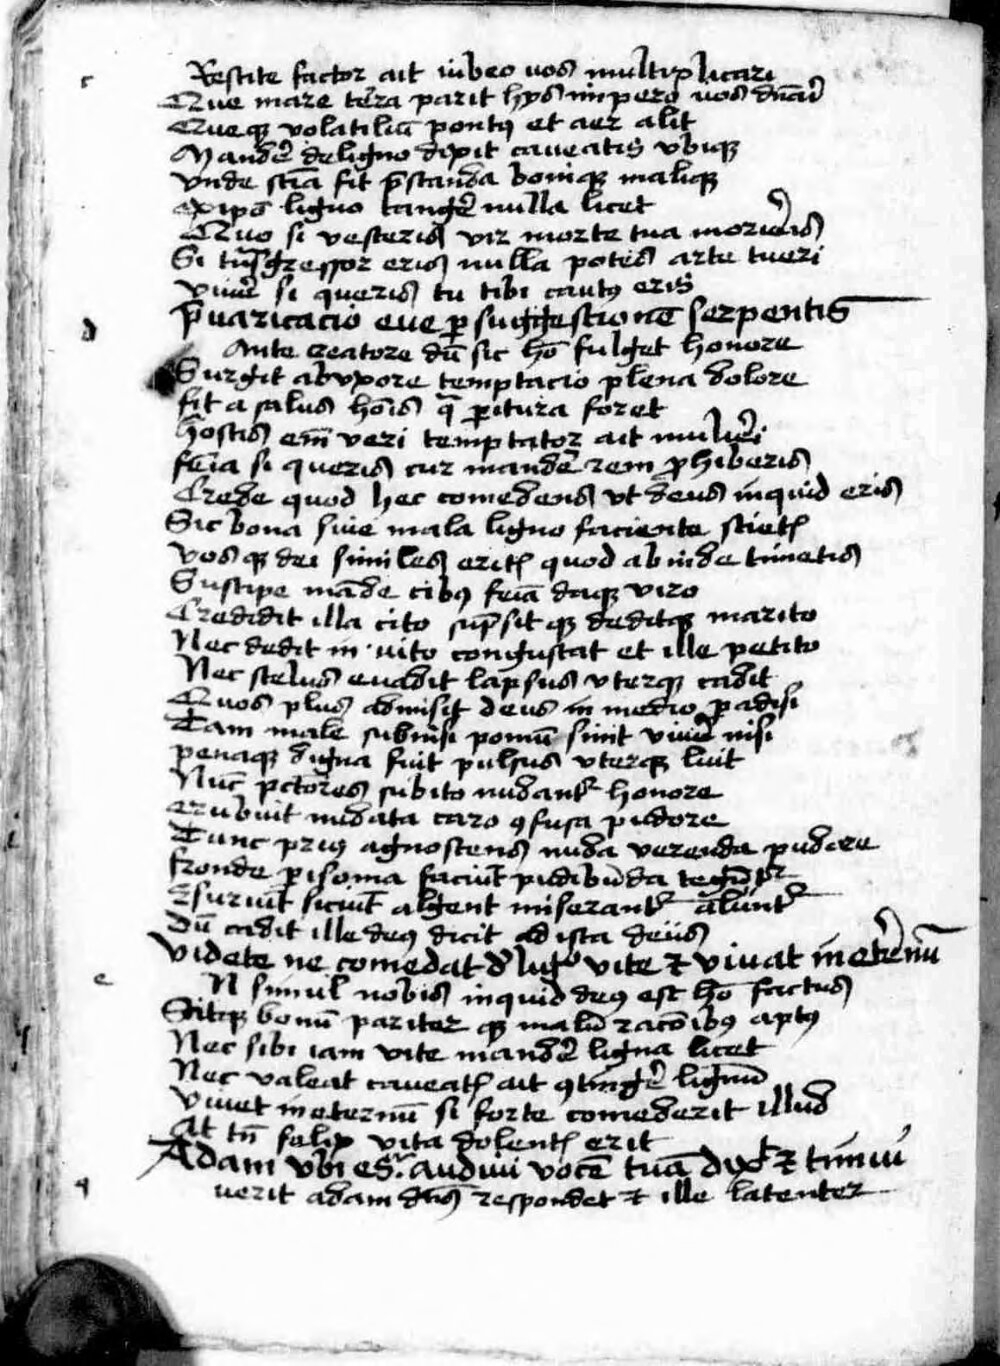 r
Restite factor ait iubeo vos multiplicari
Que mare terra parit hys impero vos dnari
Queque volatiliū pontus et aer alit
Mandere de ligno dixit caveatis ubique
Unde sciā fit prestanda bonique malique
ex ipō ligno tangere nulla licet
Quo si vesceris vir morte tua morieris
Si transgressor eris nulla potes arte tueri
vivere si queris tu tibi cautus eris
Prevaricacio eve per suggestionē serpentis
d
Ante creatore dū sic hō fulget honore
Surgit ab uxore temptacio plena dolore
fit a salus hōis que peritura foret
hostis em veri temptator ait mulieri
feīa si queris cur mandere rem prohiberis
Crede quod hec comedens ut deus inquid eris
Sic bona sive mala ligno faciente scietis
vosque dei similes eritis quod ab inde timetis
Suscipe māde cibus feīa daque viro
Credidit illa cito sūpsitque deditque marito
Nec dedit invito congustat et ille petito
Nec scelus evadit lapsus uterque cadit
Quos plus admisit deus in medio paradisi
Tam male submisi pomū sinit vivere nisi
penaque digna fuit pulsus uterque luit
Nūc pctores subito nudantur honore
erubuit nudata caro confusa pudore
Tunc prius agnoscens nuda verenda pudore
fronde perisoma faciūt pudibūda teguntur
Esuriūt siciūt algent miserantur
Dū cadit ille deus dicit ad ista deus
Videte ne comedat de ligno vite et vivat in eternū
e
N simul nobis inquid deus est hō factus
Scitque bonū pariterque malū racōibus aptus
Nec sibi iam vite mandere ligna licet
Nec valeat caveatis ait contingere lignū
Vivet in eternū si forte comederit illud
At tn felix vita dolentis erit
Adam ubi es. audivi vocē tuā dn̄e et timui
q
uerit adam dn̄s respondet et ille latenter